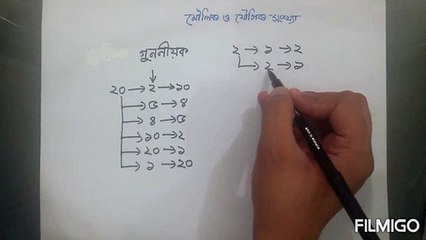 মৌলিক ও যৌগিক সংখ্যা
গুননীয়ক
২০ → ২ → ১০
→ ৫ → ৪
→ ৪ → ৫
→ ১০ → ২
→ ২০ → ১
→ ১ → ২০
২ → ১ → ২
→ ২ → ১
FILMIGO